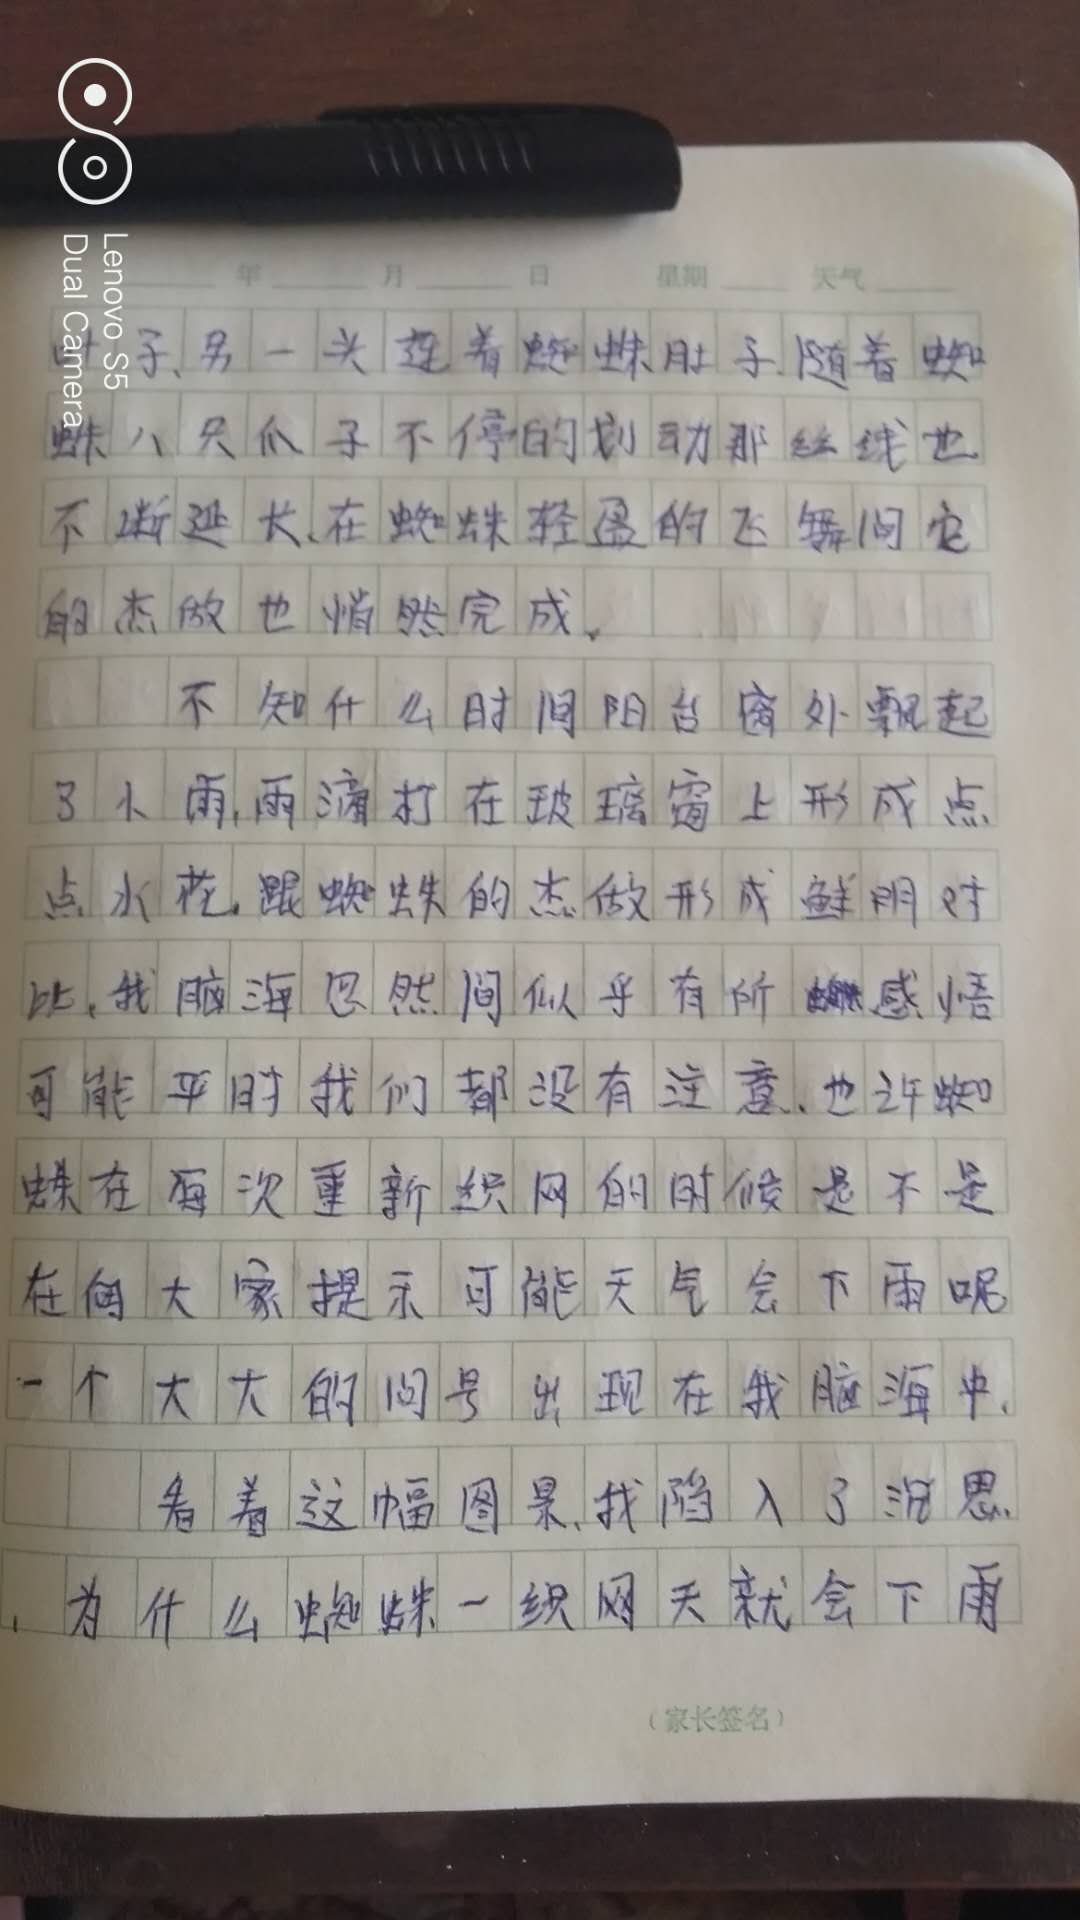 Lenovo S5
Dual Camera
年 月 日 星期 天气
叶子、另一头连着蜘蛛肚子.随着蜘
蛛八只爪子不停的划动那丝线也
不断延长.在蜘蛛轻盈的飞舞间它
的杰做也悄然完成.
不知什么时间阳台窗外飘起
了小雨,雨滴打在玻璃窗上形成点
点水花.跟蜘蛛的杰做形成鲜明对
比.我脑海忽然间似乎有所感悟
可能平时我们都没有注意.也许蜘
蛛在每次重新织网的时候是不是
在向大家提示可能天气会下雨呢
一个大大的问号出现在我脑海中.
看着这幅图景.我陷入了沉思.
,为什么蜘蛛一织网天就会下雨
(家长签名)